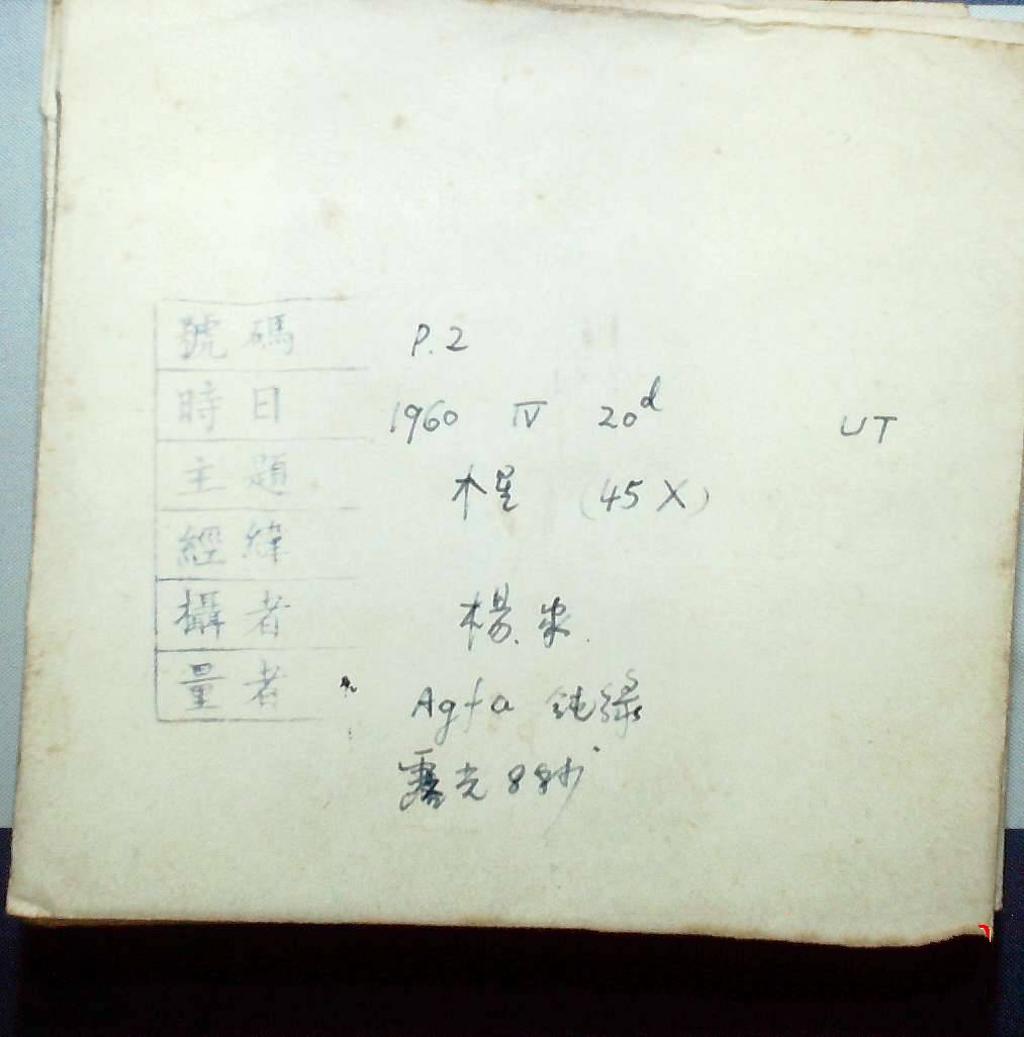 號碼 P.2
時日 1960 IV 20d UT
主題 木星 (45X)
經緯
攝者 楊
量者 Agfa
露光 8秒